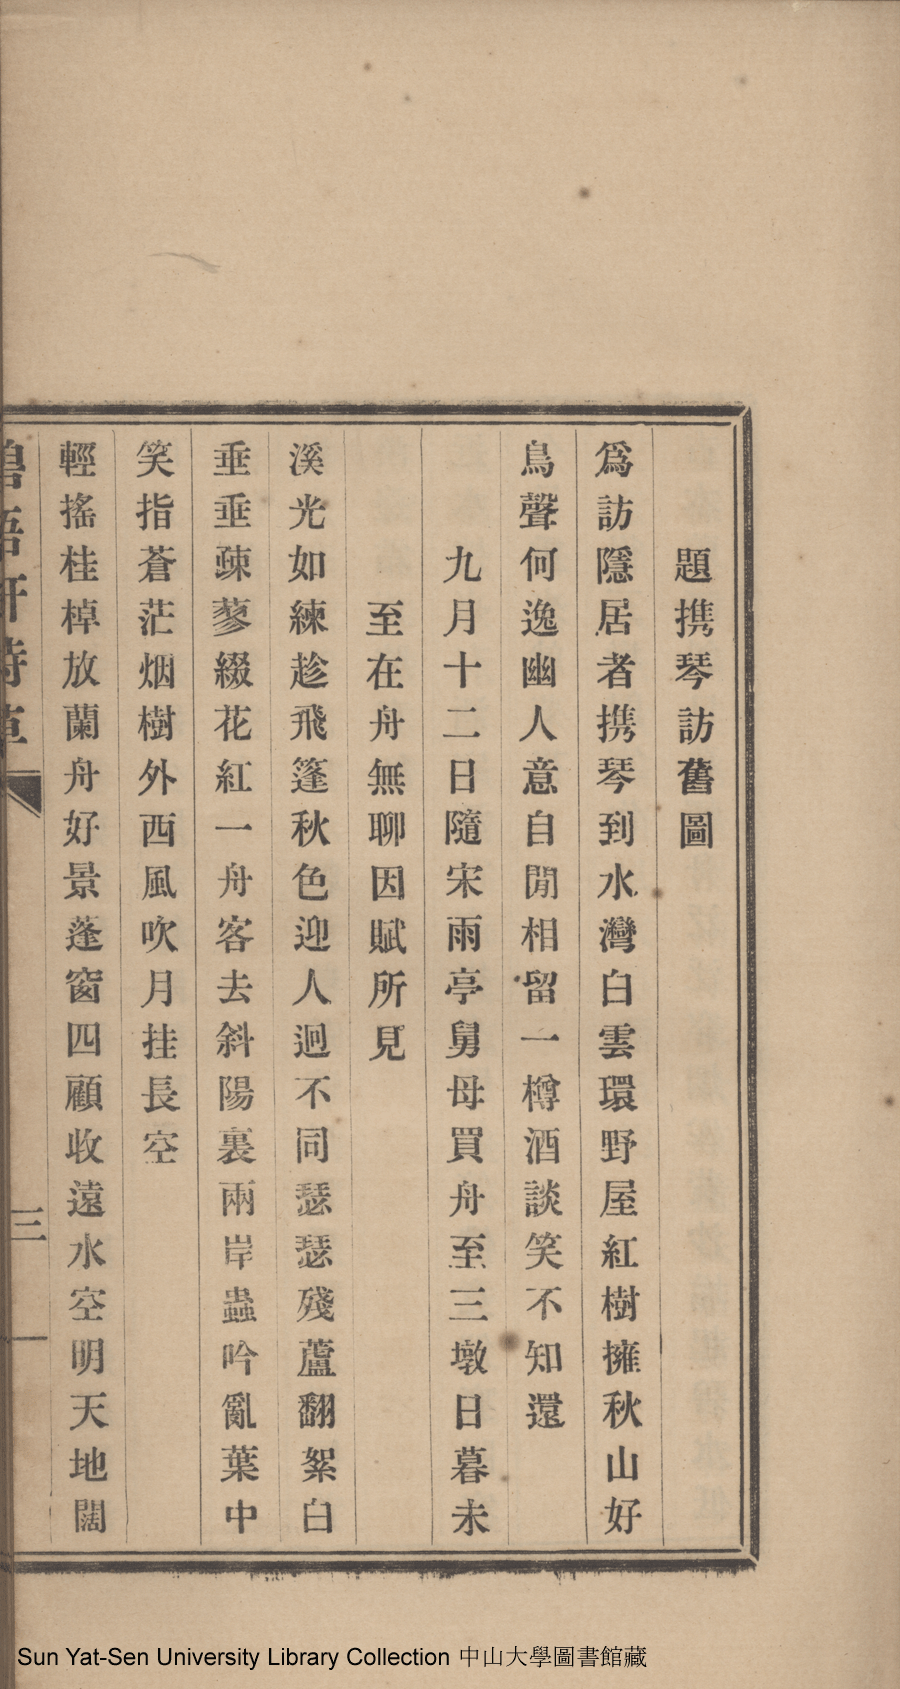 題携琴訪舊圖
爲訪隱居者携琴到水灣白雲環野屋紅樹擁秋山好
鳥聲何逸幽人意自閒相留一樽酒談笑不知還
九月十二日隨宋雨亭舅母買舟至三墩日暮未
至在舟無聊因賦所見
溪光如練趁飛篷秋色迎人迥不同瑟瑟殘蘆翻絮白
垂垂疎蓼綴花紅一舟客去斜陽裏兩岸蟲吟亂葉中
笑指蒼茫烟樹外西風吹月挂長空
輕搖桂棹放蘭舟好景蓬窗四顧收遠水空明天地闊
碧梧軒詩草
三
Sun Yat-Sen University Library Collection 中山大學圖書館藏